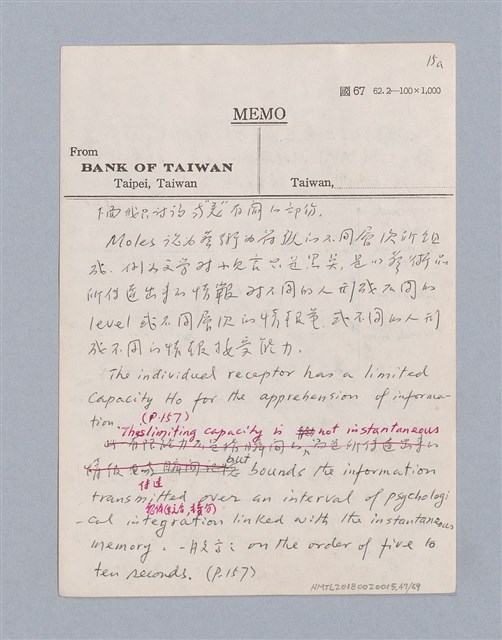 15a
國67 62.2—100×1,000
MEMO
From
BANK OF TAIWAN
Taipei, Taiwan
Taiwan,
下面我只討論與“美”有關的部份.
Moles 認為藝術為符號的不同層次所組
成. 例如文學對小兒言只是黑炭. 是以藝術品
所傳達出來的情報對不同的人形成不同的
level 或不同層次的情報量, 或不同的人形
成不同的情報接受能力.
The individual receptor has a limited
capacity Ho for the apprehension of informa-
tion. (P.157)
This limiting capacity is not instantaneous
but bounds the information
傳達
transmitted over an interval of psychologi
-cal integration linked with the instantaneous
memory. 一般言之 on the order of five to
ten seconds. (P.157)
NMTL20180020015,47/69